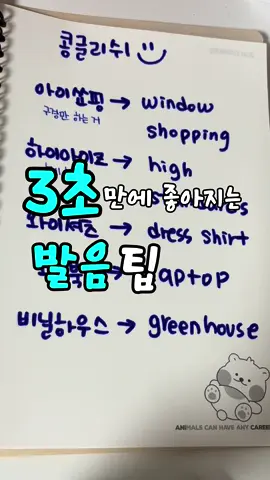 콩글리쉬
아이쇼핑 → window
구경만 하는 거
shopping
하이아이즈 → high
3초만에 좋아지는
와이셔츠 → dress shirt
발음 팁
비닐하우스 → greenhouse
ANIMALS CAN HAVE ANY CAREER